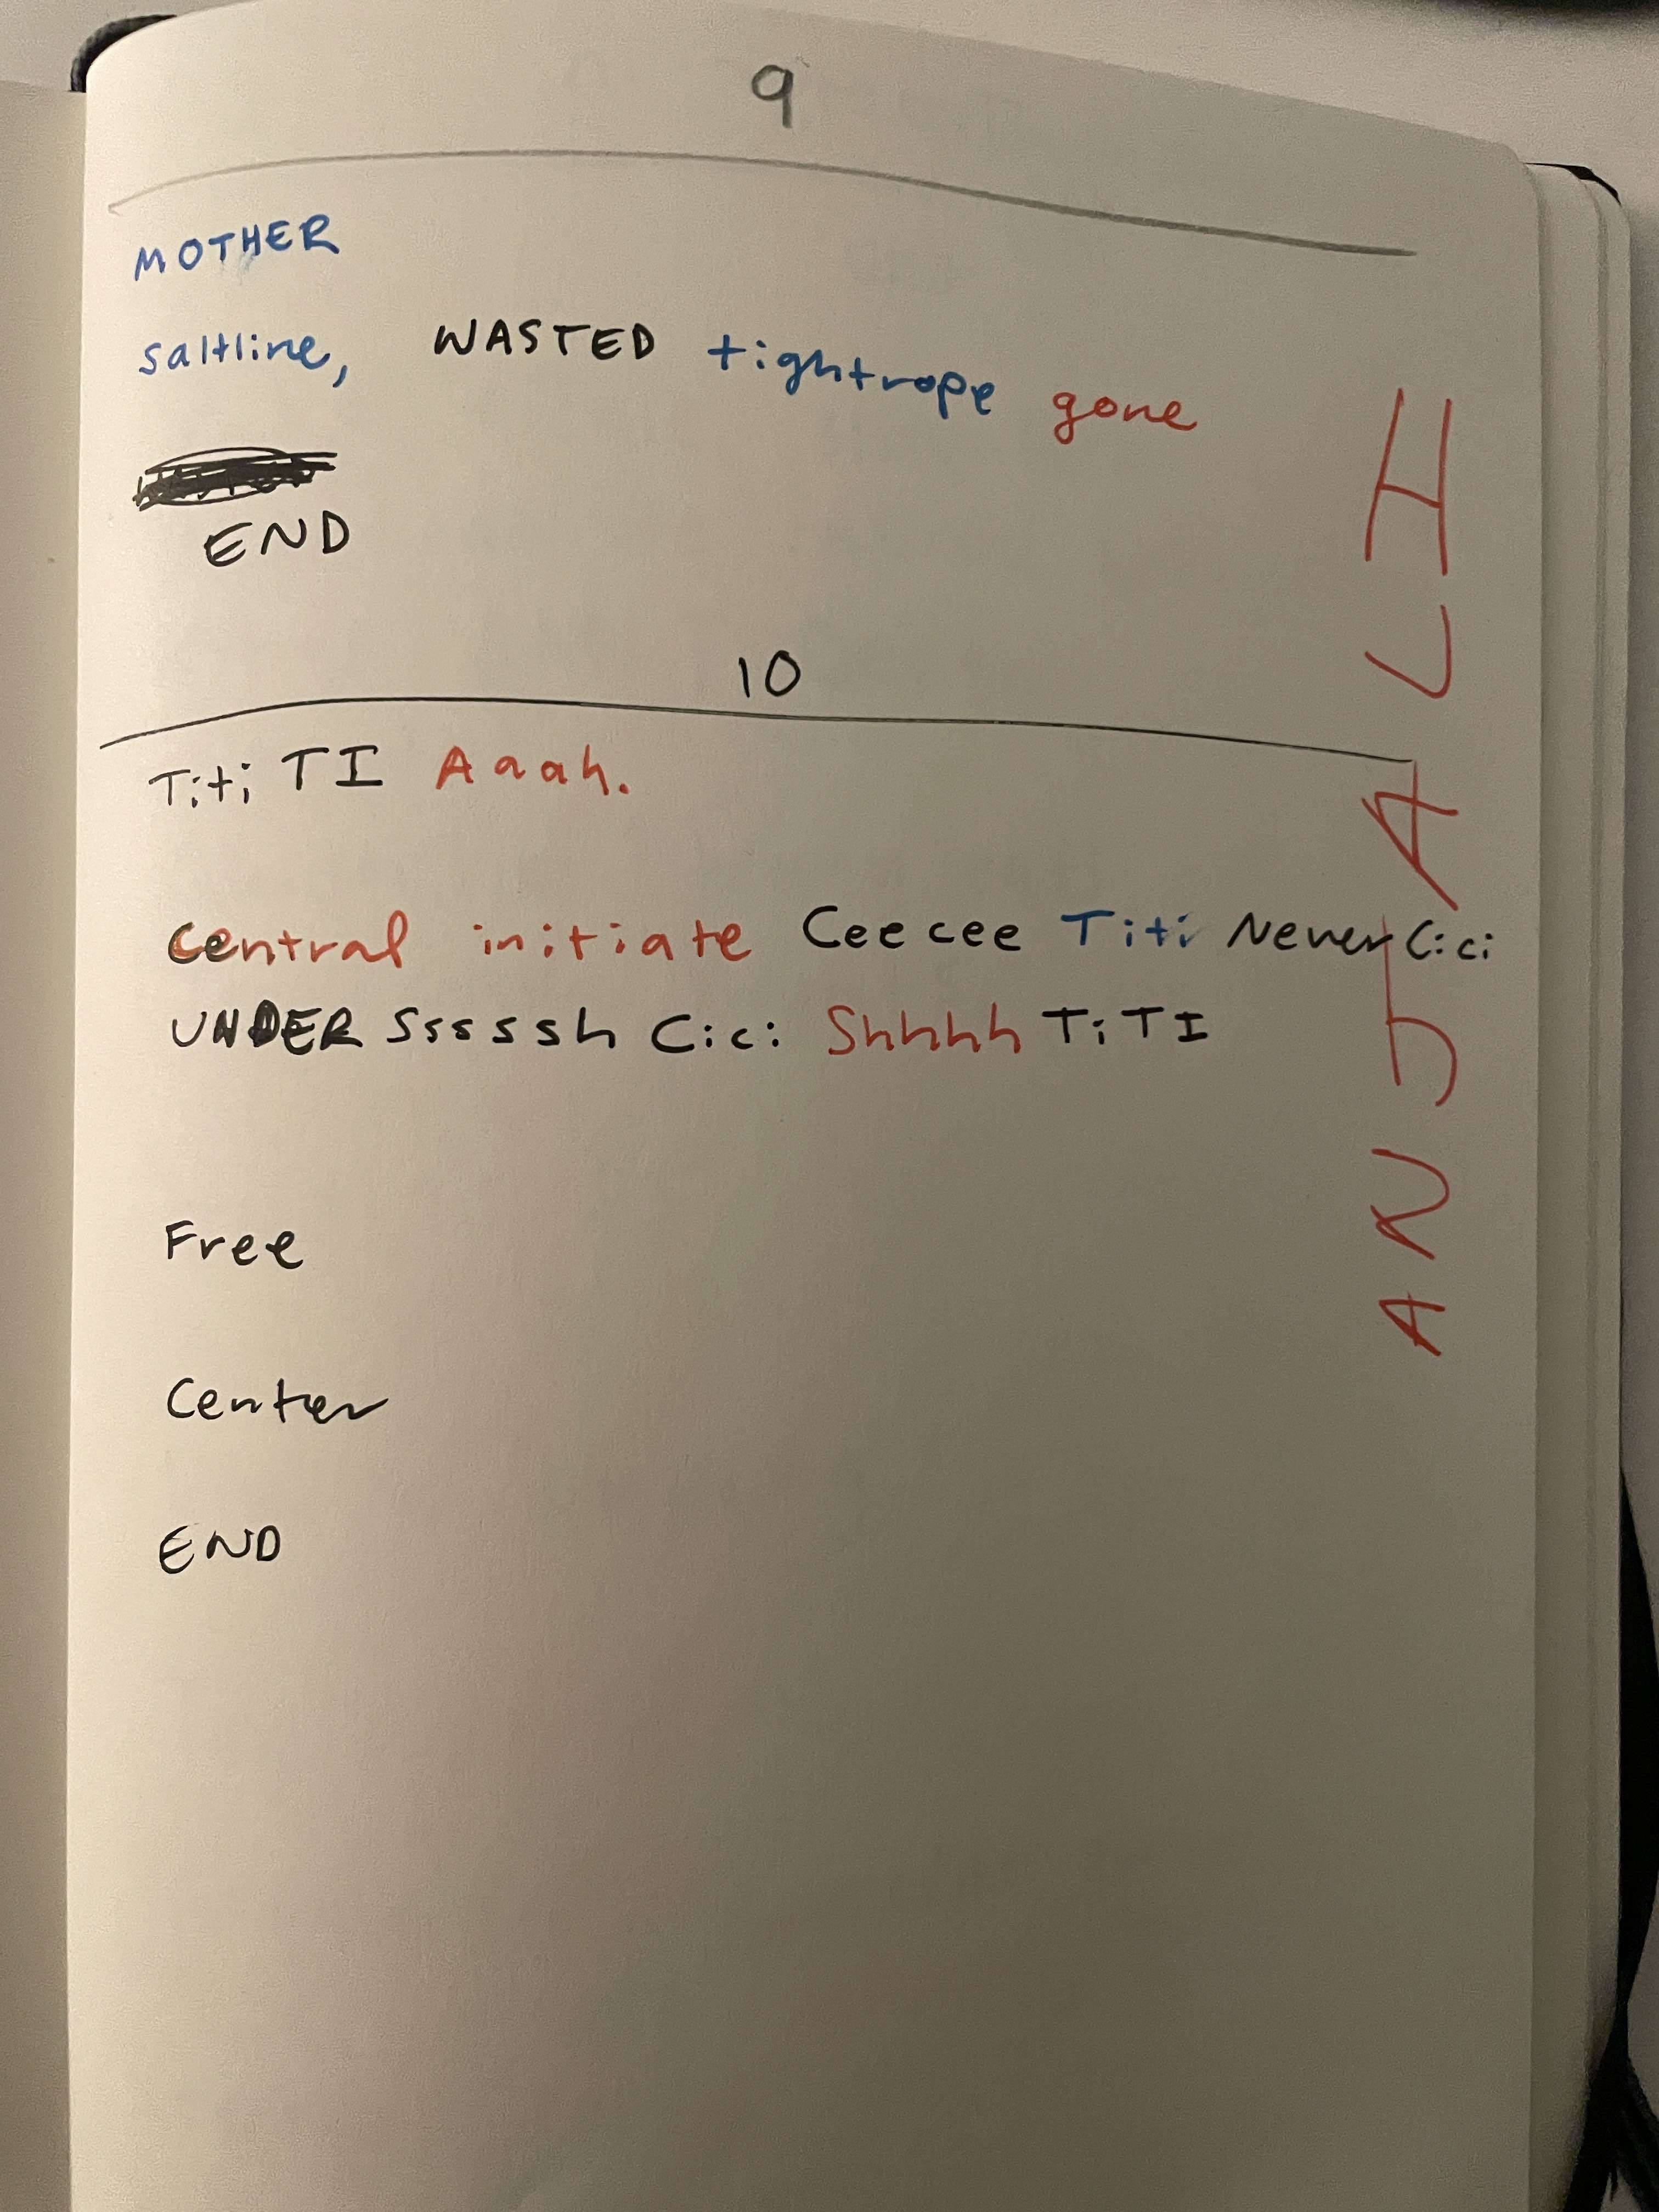 9
MOTHER
saltline, WASTED tightrope gone
END
10
Titi TI Aaah.
Central initiate Ceecee Titi Never Cici
UNDER Sssssh Cici Shhhh TiTI
Free
Center
END